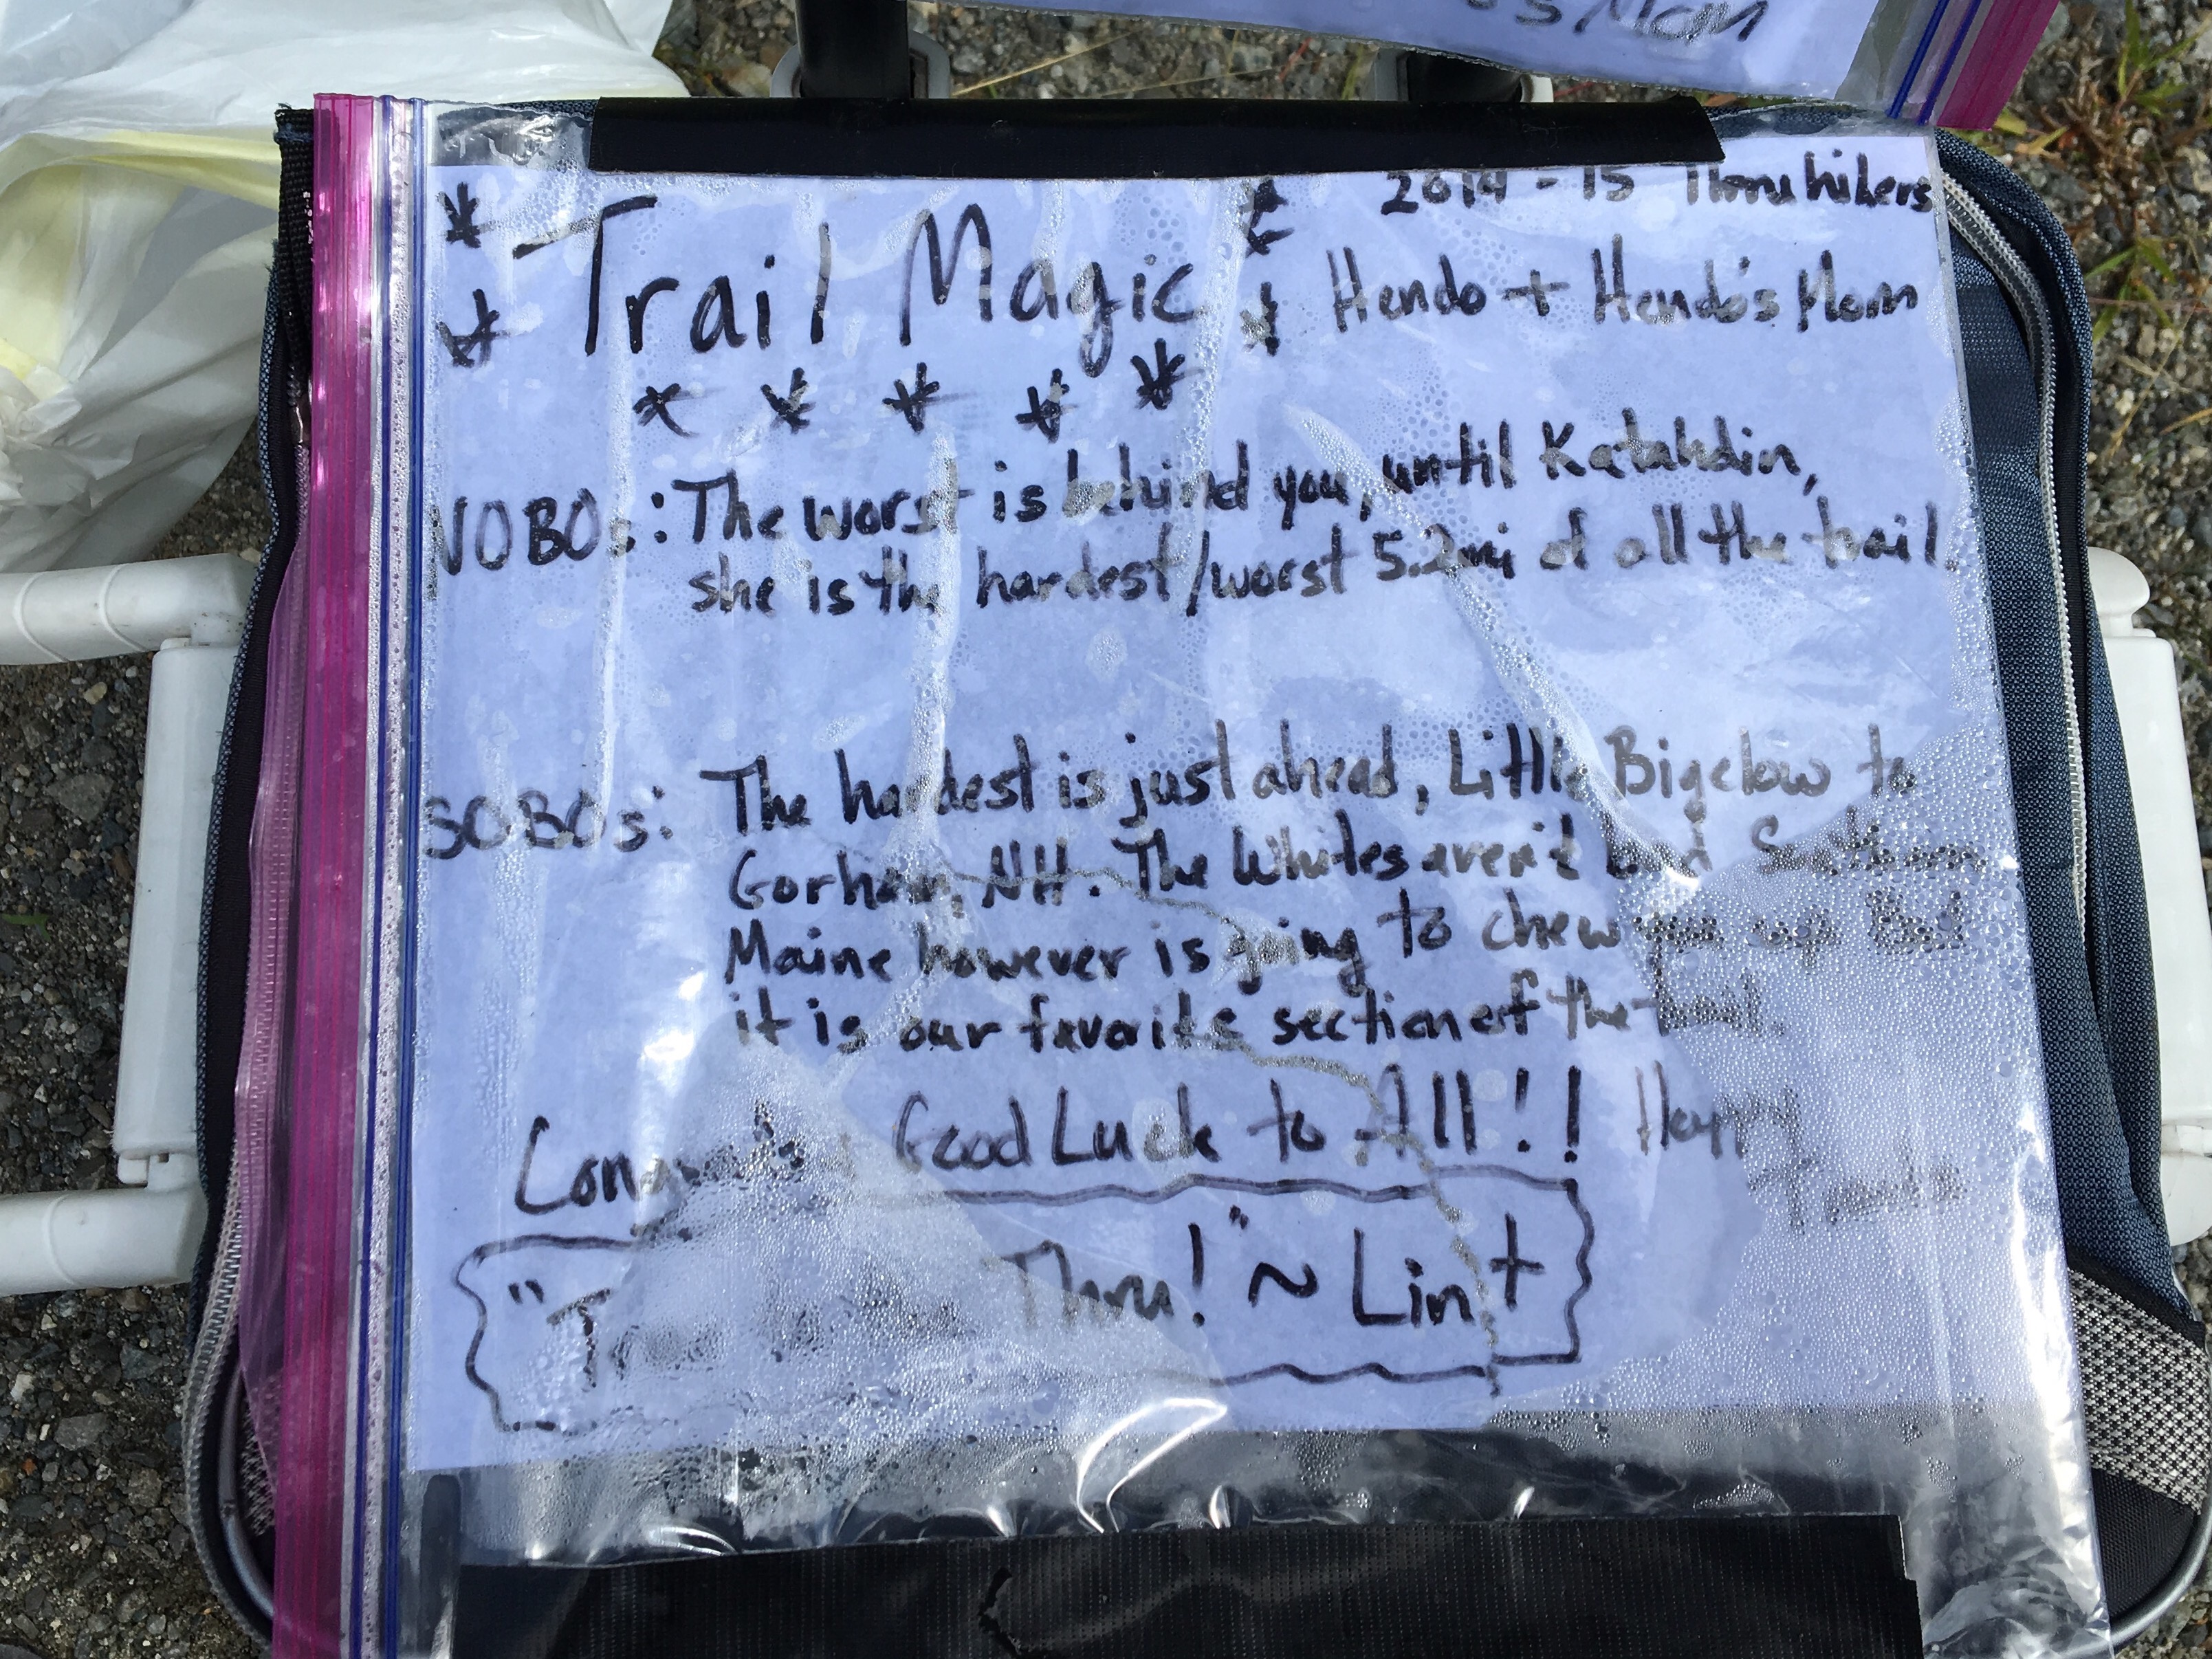 's Mom
2014 - 15 Thru hikers
* Trail Magic *
* * Hendo + Hendo's Mom
* * * * *
NOBOs: The worst is behind you, until Katahdin,
she is the hardest/worst 5.2mi of all the trail.
SOBOs: The hardest is just ahead, Little Bigelow to
Gorham, NH. The Whites aren't bad Southern
Maine however is going to chew you up but
it is our favorite section of the trail.
Good Luck to All!! Happy
Trails
Thru!" ~ Lint